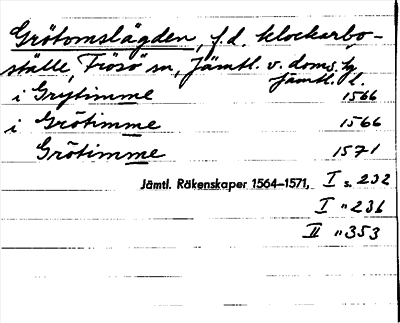 Grötomslägden, f.d. klockarbo-
ställe, Frösö sn, Jämtl. v. doms. hg
Jämtl. l.
i Grytimme 1566
i Grötimme 1566
Grötimme 1571
Jämtl. Räkenskaper 1564–1571, I s. 232
I " 236
II " 353